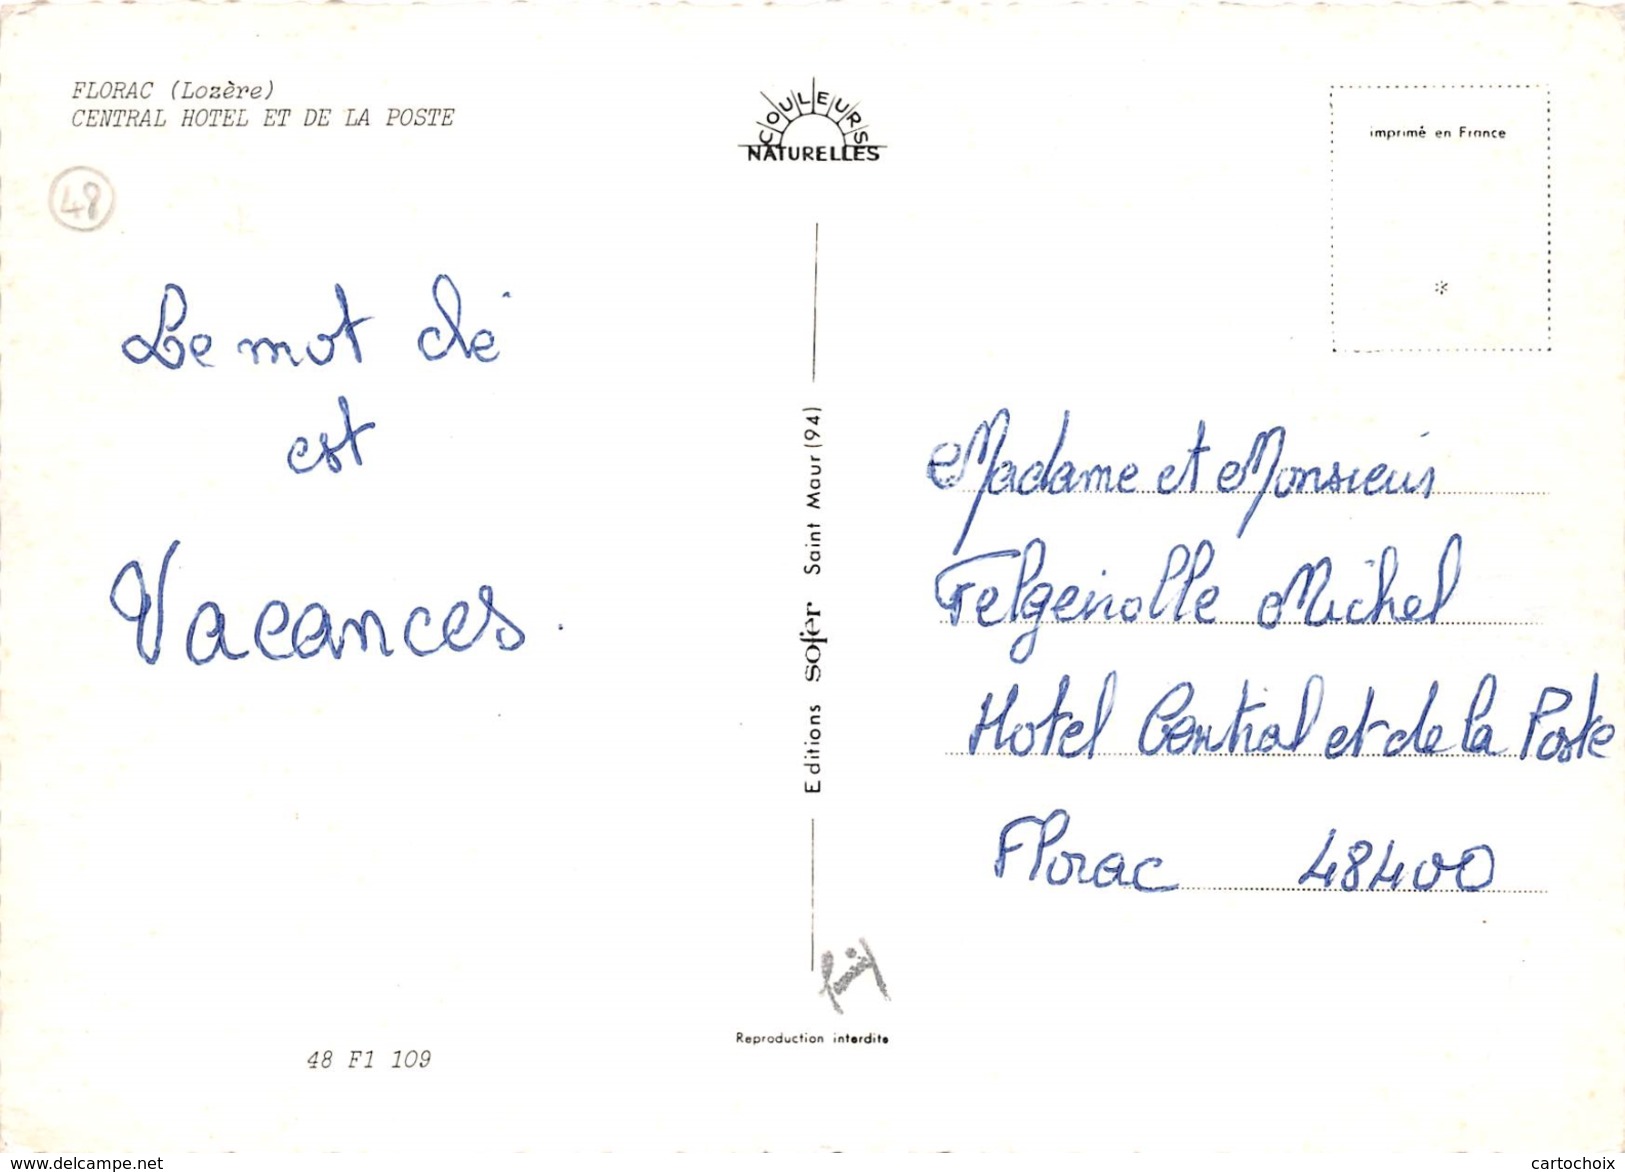 FLORAC (Lozère)
CENTRAL HOTEL ET DE LA POSTE
48
COULEURS
NATURELLES
imprimé en France
*
Le mot clé
est
Vacances.
Editions sofer Saint Maur (94)
Madame et Monsieur
Felgeirolle Michel
Hotel Central et de la Poste
Florac 48400
Reproduction interdite
48 F1 109
www.delcampe.net
cartochoix